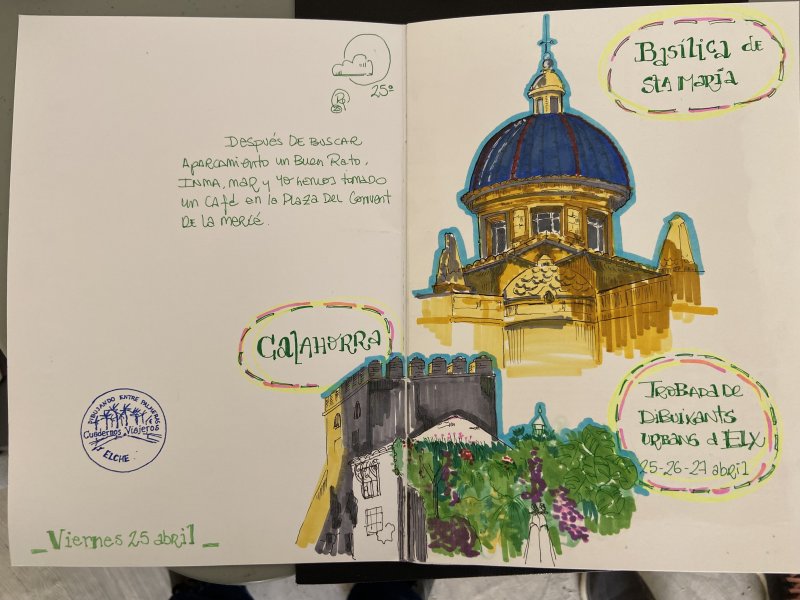 25º
Después de buscar
aparcamiento un buen rato,
Inma, Mar y yo hemos tomado
un café en la Plaza del Convent
de la Mercé.
Calahorra
DIBUJANDO ENTRE PALMERAS
Cuadernos Viajeros
ELCHE
Viernes 25 abril
Basílica de
Sta María
Trobada de
Dibuixants
Urbans d'Elx
25-26-27 abril